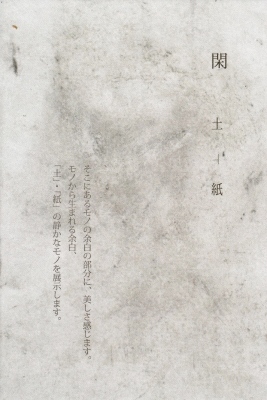 閑
土 ― 紙
そこにあるモノの余白の部分に、美しさ感じます。
モノから生まれる余白、
「土」・「紙」の静かなモノを展示します。